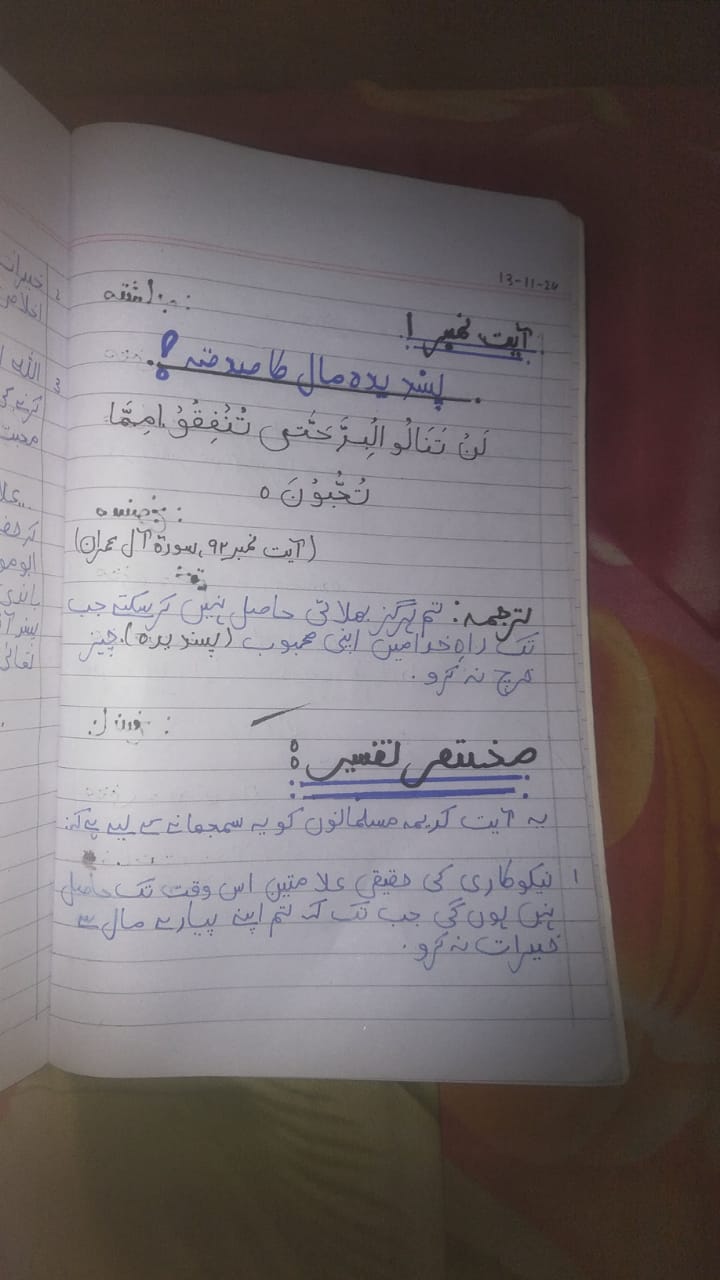 13-11-24
آیت نمبر 1
پسندیدہ مال کا صدقہ:
لَنْ تَنَالُو الْبِرَّ حَتّٰى تُنْفِقُوْا مِمَّا
تُحِبُّوْنَ ه
(آیت نمبر ۹۲، سورۃ آل عمران)
ترجمہ: تم ہرگز بھلائی حاصل نہیں کر سکتے جب
تک راہِ خدا میں اپنی محبوب (پسندیدہ) چیز
خرچ نہ کرو.
مختصر تفسیر:
یہ آیت کریمہ مسلمانوں کو یہ سمجھانے کے لیے ہے کہ:
1 نیکوکاری کی حقیقی علامتیں اس وقت تک حاصل
نہیں ہوں گی جب تک کہ تم اپنے پیارے مال سے
خیرات نہ کرو.